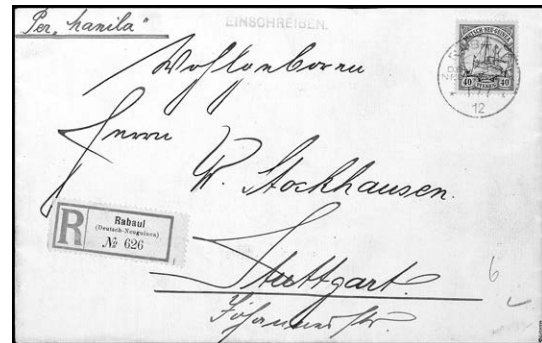 Per „Manila“
EINSCHREIBEN.
DEUTSCH-NEU-GUINEA
40 PFENNIG 40
12
Wohlgeboren
Herrn
W. Stockhausen.
R
Rabaul
(Deutsch-Neuguinea)
№ 626
Stuttgart.
Johannesstr.
6